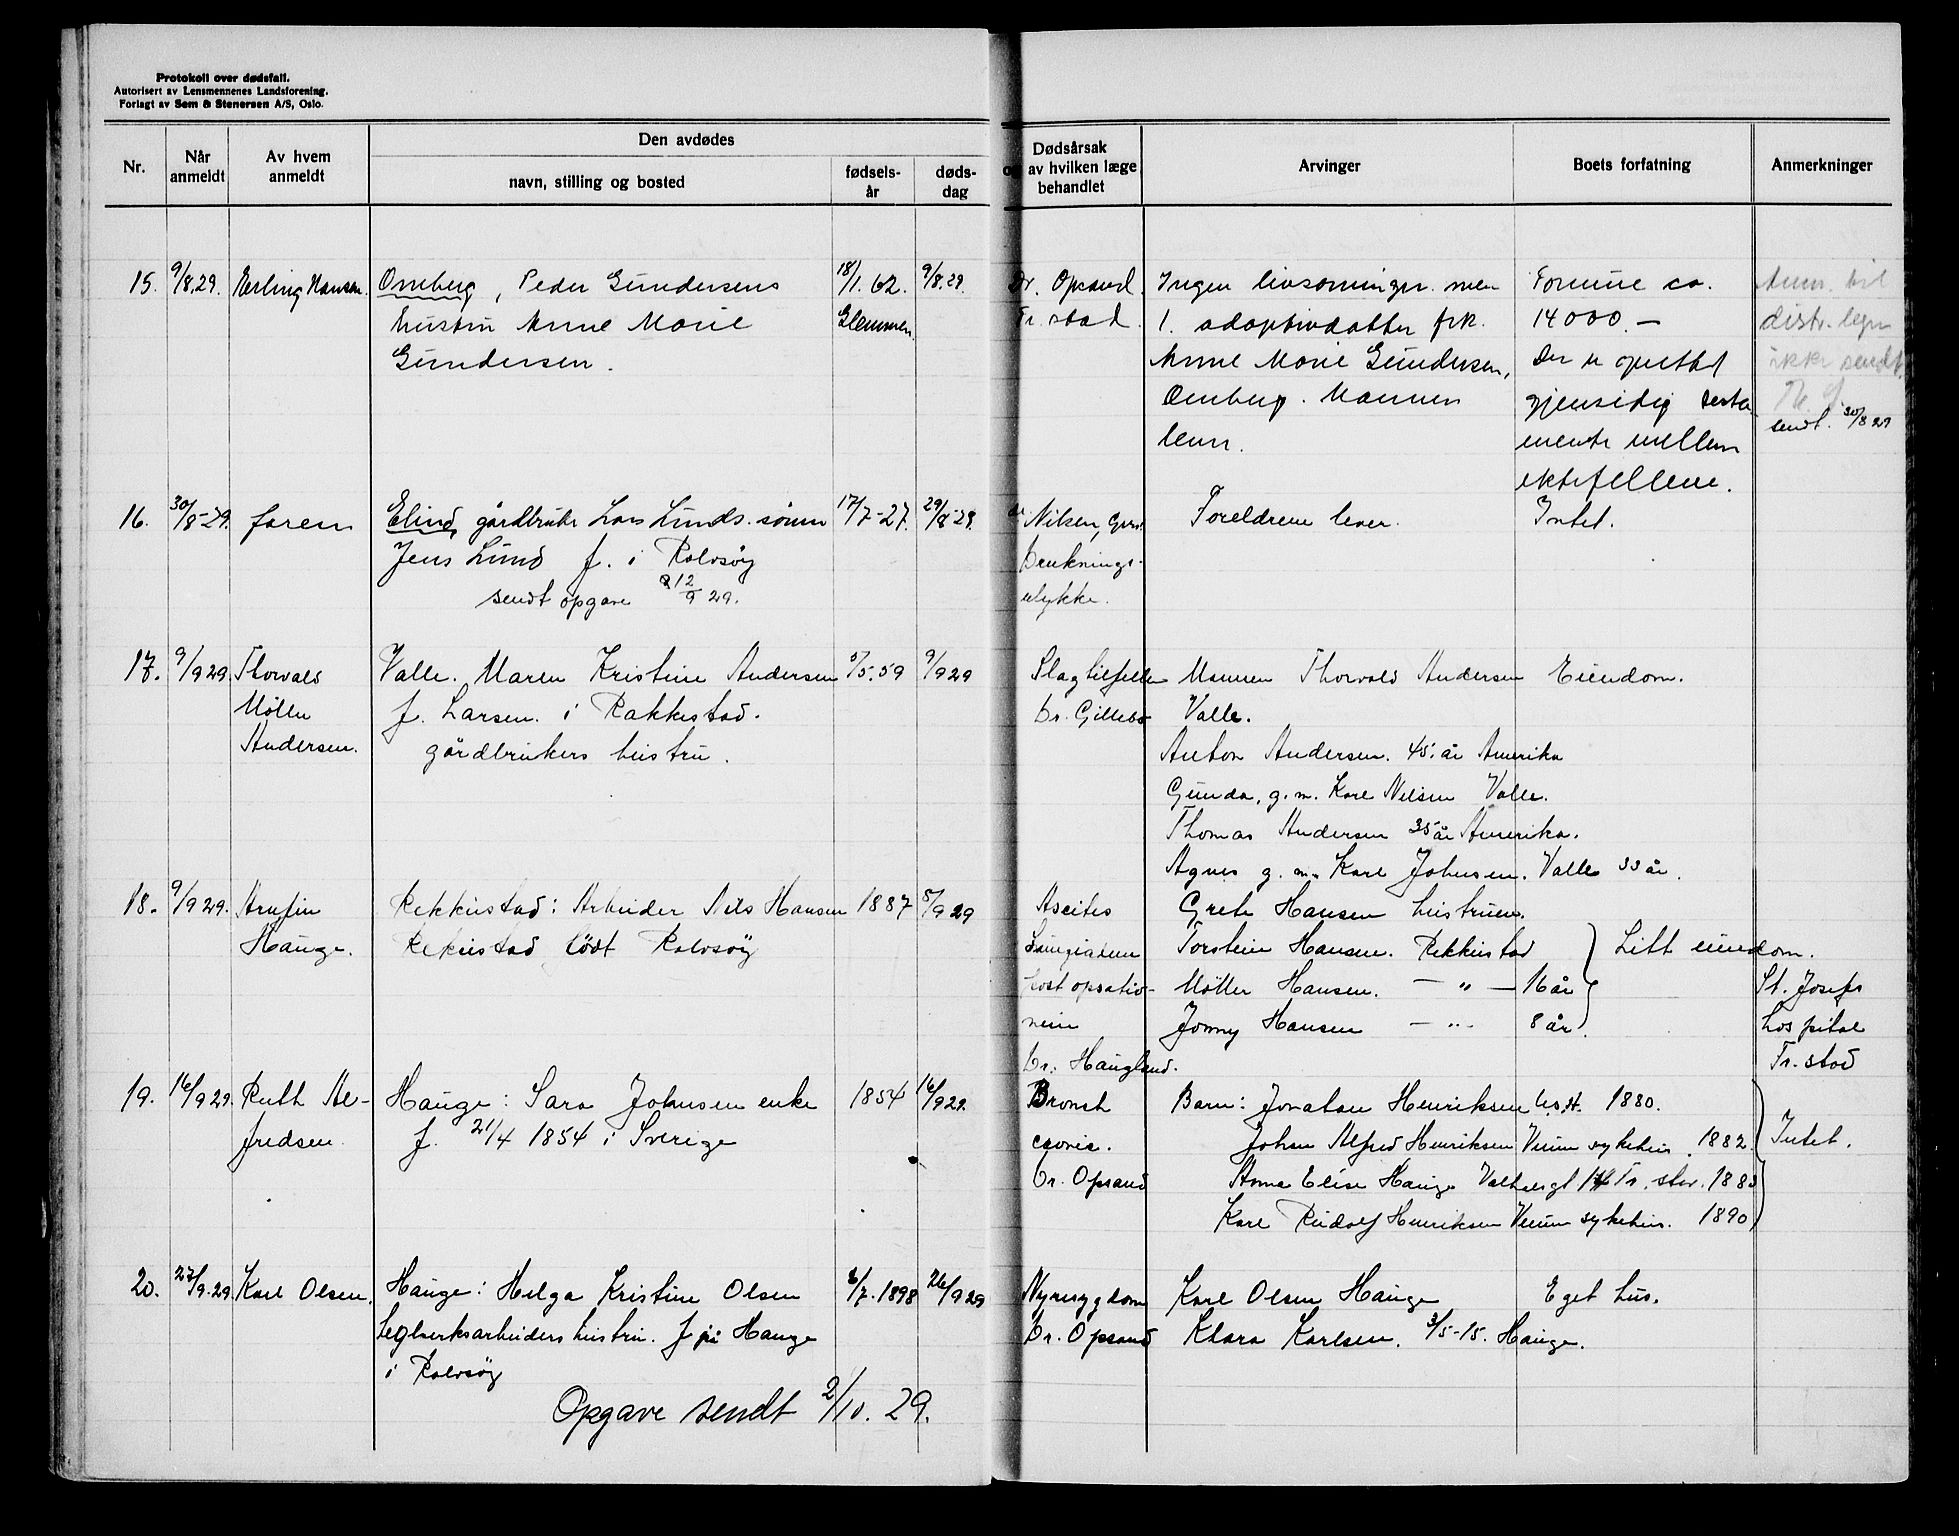 Protokoll over dødsfall.
Autorisert av Lensmennenes Landsforening.
Forlagt av Sem & Stenersen A/S, Oslo.
Nr.
Når anmeldt
Av hvem anmeldt
Den avdødes
navn, stilling og bosted
fødsels-år
døds-dag
Dødsårsak
og av hvilken læge
behandlet
Arvinger
Boets forfatning
Anmerkninger
15. 9/8.29. Erling Hansen. Omberg, Peder Gundersens 18/1.62. 9/8.29.
hustru Anne Marie Glemmen.
Gundersen.
Dr. Opsand. Ingen livsarvinger. men Formue ca.
Fr.stad. 1. adoptivdatter frk. 14000.—
Anne Marie Gundersen, Der er oprettet
Omberg. Mannen gjensidig testa
lever. mente mellem
ektefellene.
Anm. til
distr. legen
ikke sendt.
sendt. 30/8 29
16. 30/8-29. faren Elind, gårdbruker Lars Lunds. sønn 17/7-27. 29/8-29.
Jens Lund f. i Rolvsøy
sendt opgave 12/9 29.
dr Nilsen, Foreldrene lever. Intet.
Drukningsulykke.
17. 9/9 29. Thorvald Valle. Maren Kristine Andersen 5/5.59 9/9 29
Møller f. Larsen. i Rakkestad.
Andersen. gårdbrukers hustru.
Slagtilfelle Mannen Thorvald Andersen Eiendom.
Dr. Gillebo Valle.
Anton Andersen. 45. år Amerika
Gunda, g.m. Karl Nilsen Valle.
Thomas Andersen 35 år Amerika.
Agnes g.m. Karl Johnsen. Valle 33 år.
18. 9/9 29. Arnfin Rekkustad: Arbeider Nils Hansen 1887 8/9 29
Hauge. Rekustad født Rolvsøy
Ascites Grete Hansen hustruen.
Torstein Hansen. Rekkustad Litt eiendom.
Møller Hansen. — " — 16 år St. Josefs
Jonny Hansen — " — 8 år hospital
Dr. Haugland. Fr.stad
19. 16/9 29. Ruth Al- Hauge: Sara Johnsen enke 1854 16/9 29.
fredsen. f. 21/4 1854 i Sverige
Bronch Barn: Jonatan Henriksen U.S.A. 1880.
cronic. Johan Alfred Henriksen Veum sykehus. 1882. Intet.
Dr. Opsand Anna Elise Hauge Fr.stad. 1883
Karl Rudolf Henriksen Veum sykehus. 1890
20. 27/9.29. Karl Olsen. Hauge: Helga Kristine Olsen 8/7.1898 26/9 29
teglverksarbeiders hustru. f. på Hauge
i Rolvsøy
Opgave sendt 2/10. 29.
Nyresygdom Karl Olsen Hauge Eget hus.
Dr. Opsand Klara Karlsen. 3/5-15. Hauge.